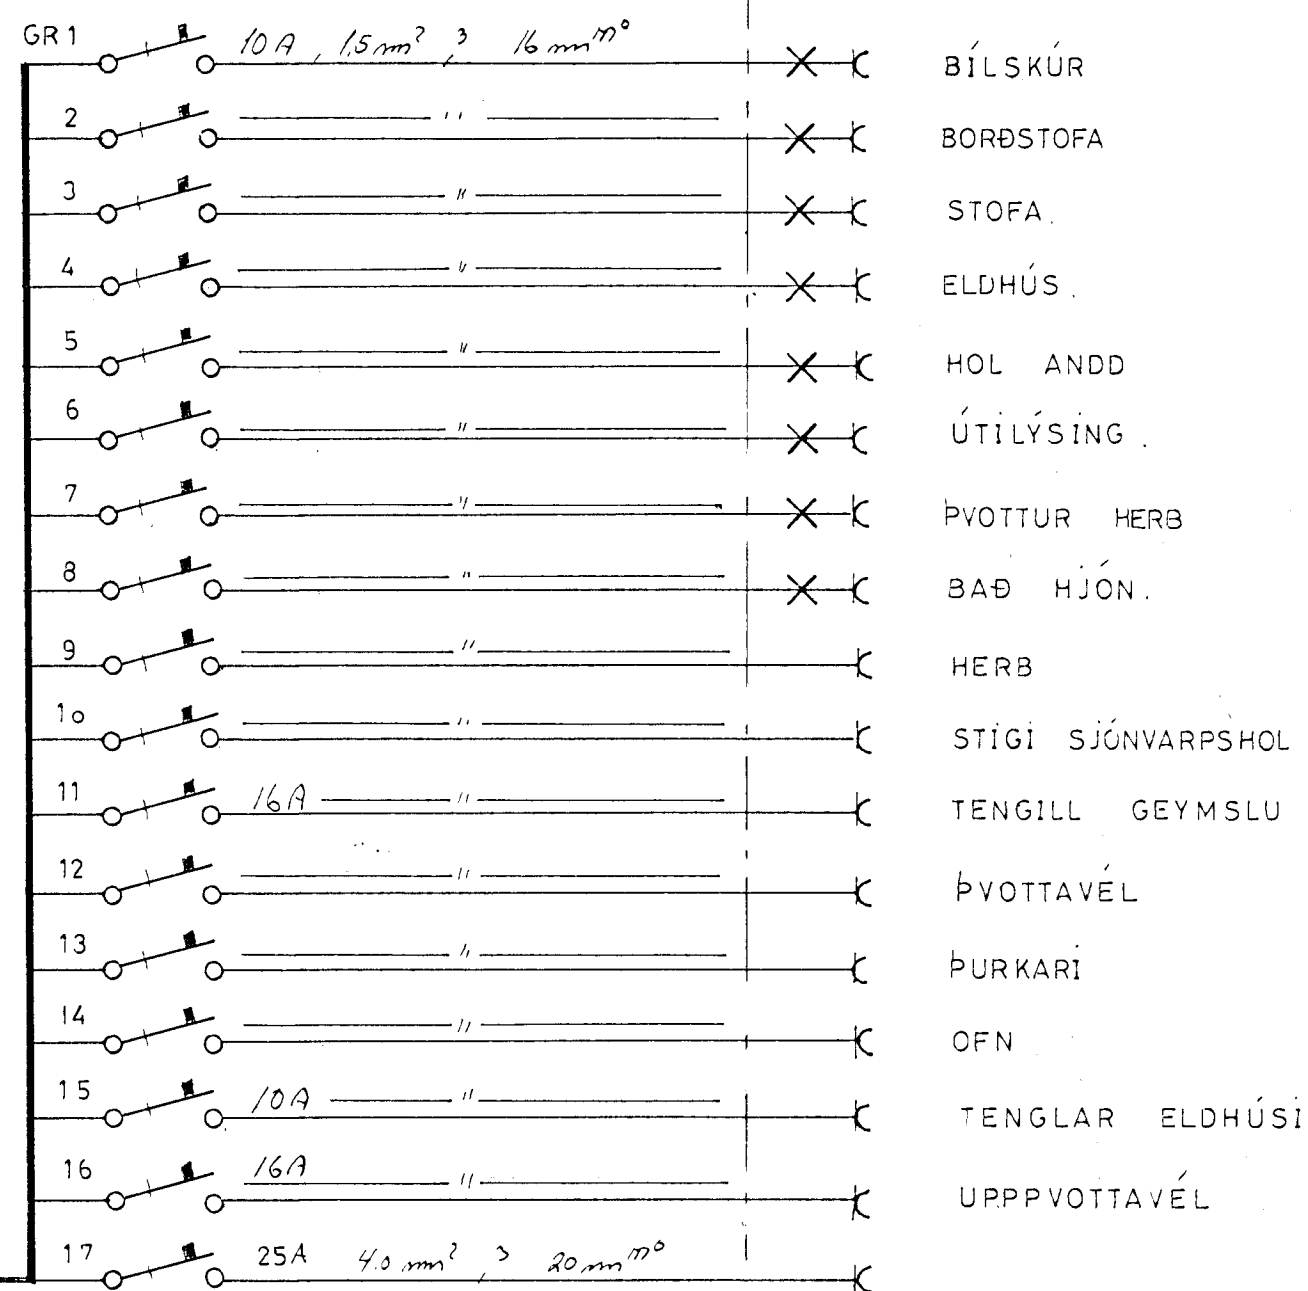 GR 1 10A, 1,5 mm², 3 16 mm⌀ BÍLSKÚR
2 " BORÐSTOFA
3 " STOFA.
4 " ELDHÚS.
5 " HOL ANDD
6 " ÚTILÝSING.
7 " ÞVOTTUR HERB
8 " BAÐ HJÓN.
9 " HERB
10 " STIGI SJÓNVARPSHOL
11 16A " TENGILL GEYMSLU
12 " ÞVOTTAVÉL
13 " ÞURKARI
14 " OFN
15 10A " TENGLAR ELDHÚSI
16 16A " UPPÞVOTTAVÉL
17 25A 4.0 mm², 3 20 mm⌀